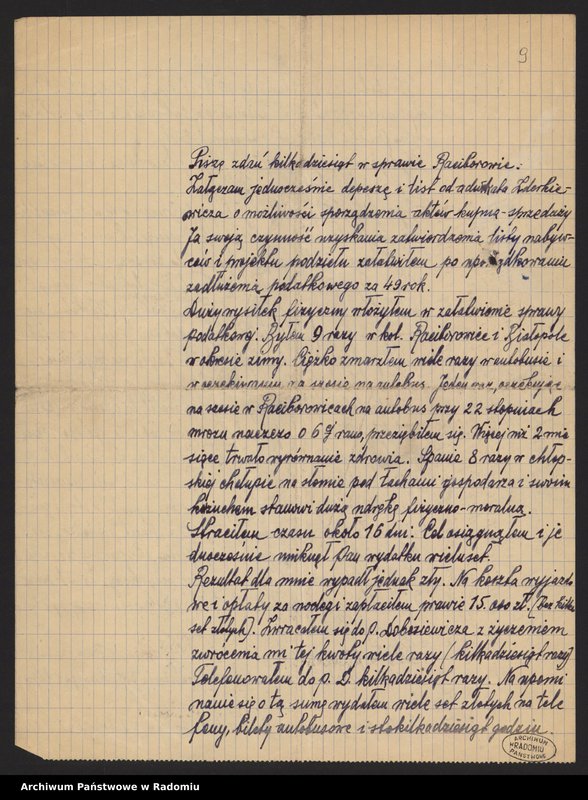 9
Piszę zdań kilkadziesiąt w sprawie Raciborowic:
Załączam jednocześnie depeszę i list od adwokata Zderkie-
wicza o możliwości sporządzenia aktów kupna-sprzedaży
Ja swoją czynność uzyskania zatwierdzenia listy nabyw-
ców i projektu podziału załatwiłem po uporządkowaniu
zadłużenia podatkowego za 49 rok.
Duży wysiłek fizyczny włożyłem w załatwienie sprawy
podatkowej. Byłem 9 razy w kol. Raciborowice i Białopole
w okresie zimy. Ciężko zmarzłem wiele razy w autobusie i
w oczekiwaniu na szosie na autobus. Jeden raz, oczekując
na szosie w Raciborowicach na autobus przy 22 stopniach
mrozu naczczo o 6 g rano, przeziębiłem się. Więcej niż 2 mie
siące trwało wyrównanie zdrowia. Spanie 8 razy w chłop-
skiej chałupie na słomie pod łachami gospodarza i swoim
kożuchem stanowi dużą udrękę fizyczno-moralną.
Straciłem czasu około 16 dni. Cel osiągnąłem i je
dnocześnie uniknął Pan wydatku wieluset.
Rezultat dla mnie wypadł jednak zły. Na koszta wyjazdo
we i opłaty za noclegi zapłaciłem prawie 15.000 zł.
set złotych). Zwracałem się do p. Dobosiewicza z życzeniem
zwrócenia mi tej kwoty wiele razy (kilkadziesiąt razy)
Telefonowałem do p. D. kilkadziesiąt razy. Na upomi
nanie się o tą sumę wydałem wiele set złotych na tele
fony, bilety autobusowe i stokilkadziesiąt godzin.
ARCHIWUM
PAŃSTWOWE
W RADOMIU
Archiwum Państwowe w Radomiu